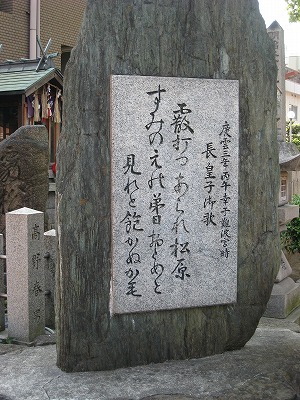 慶雲三年丙午幸于難波宮時
長皇子御歌
霰打つあられ松原
すみのえ能弟日おとめと
見れど飽かぬか毛
高野春男